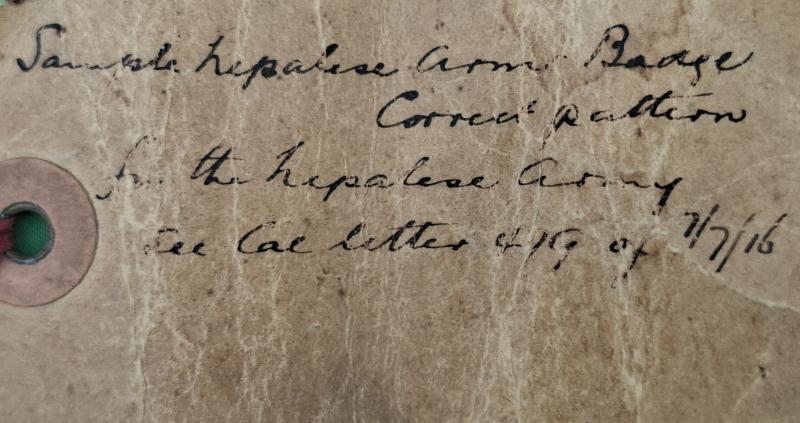 Sample Nepalese Arm Badge
Correct pattern
for the Nepalese Army
See Cal letter of 7/7/16